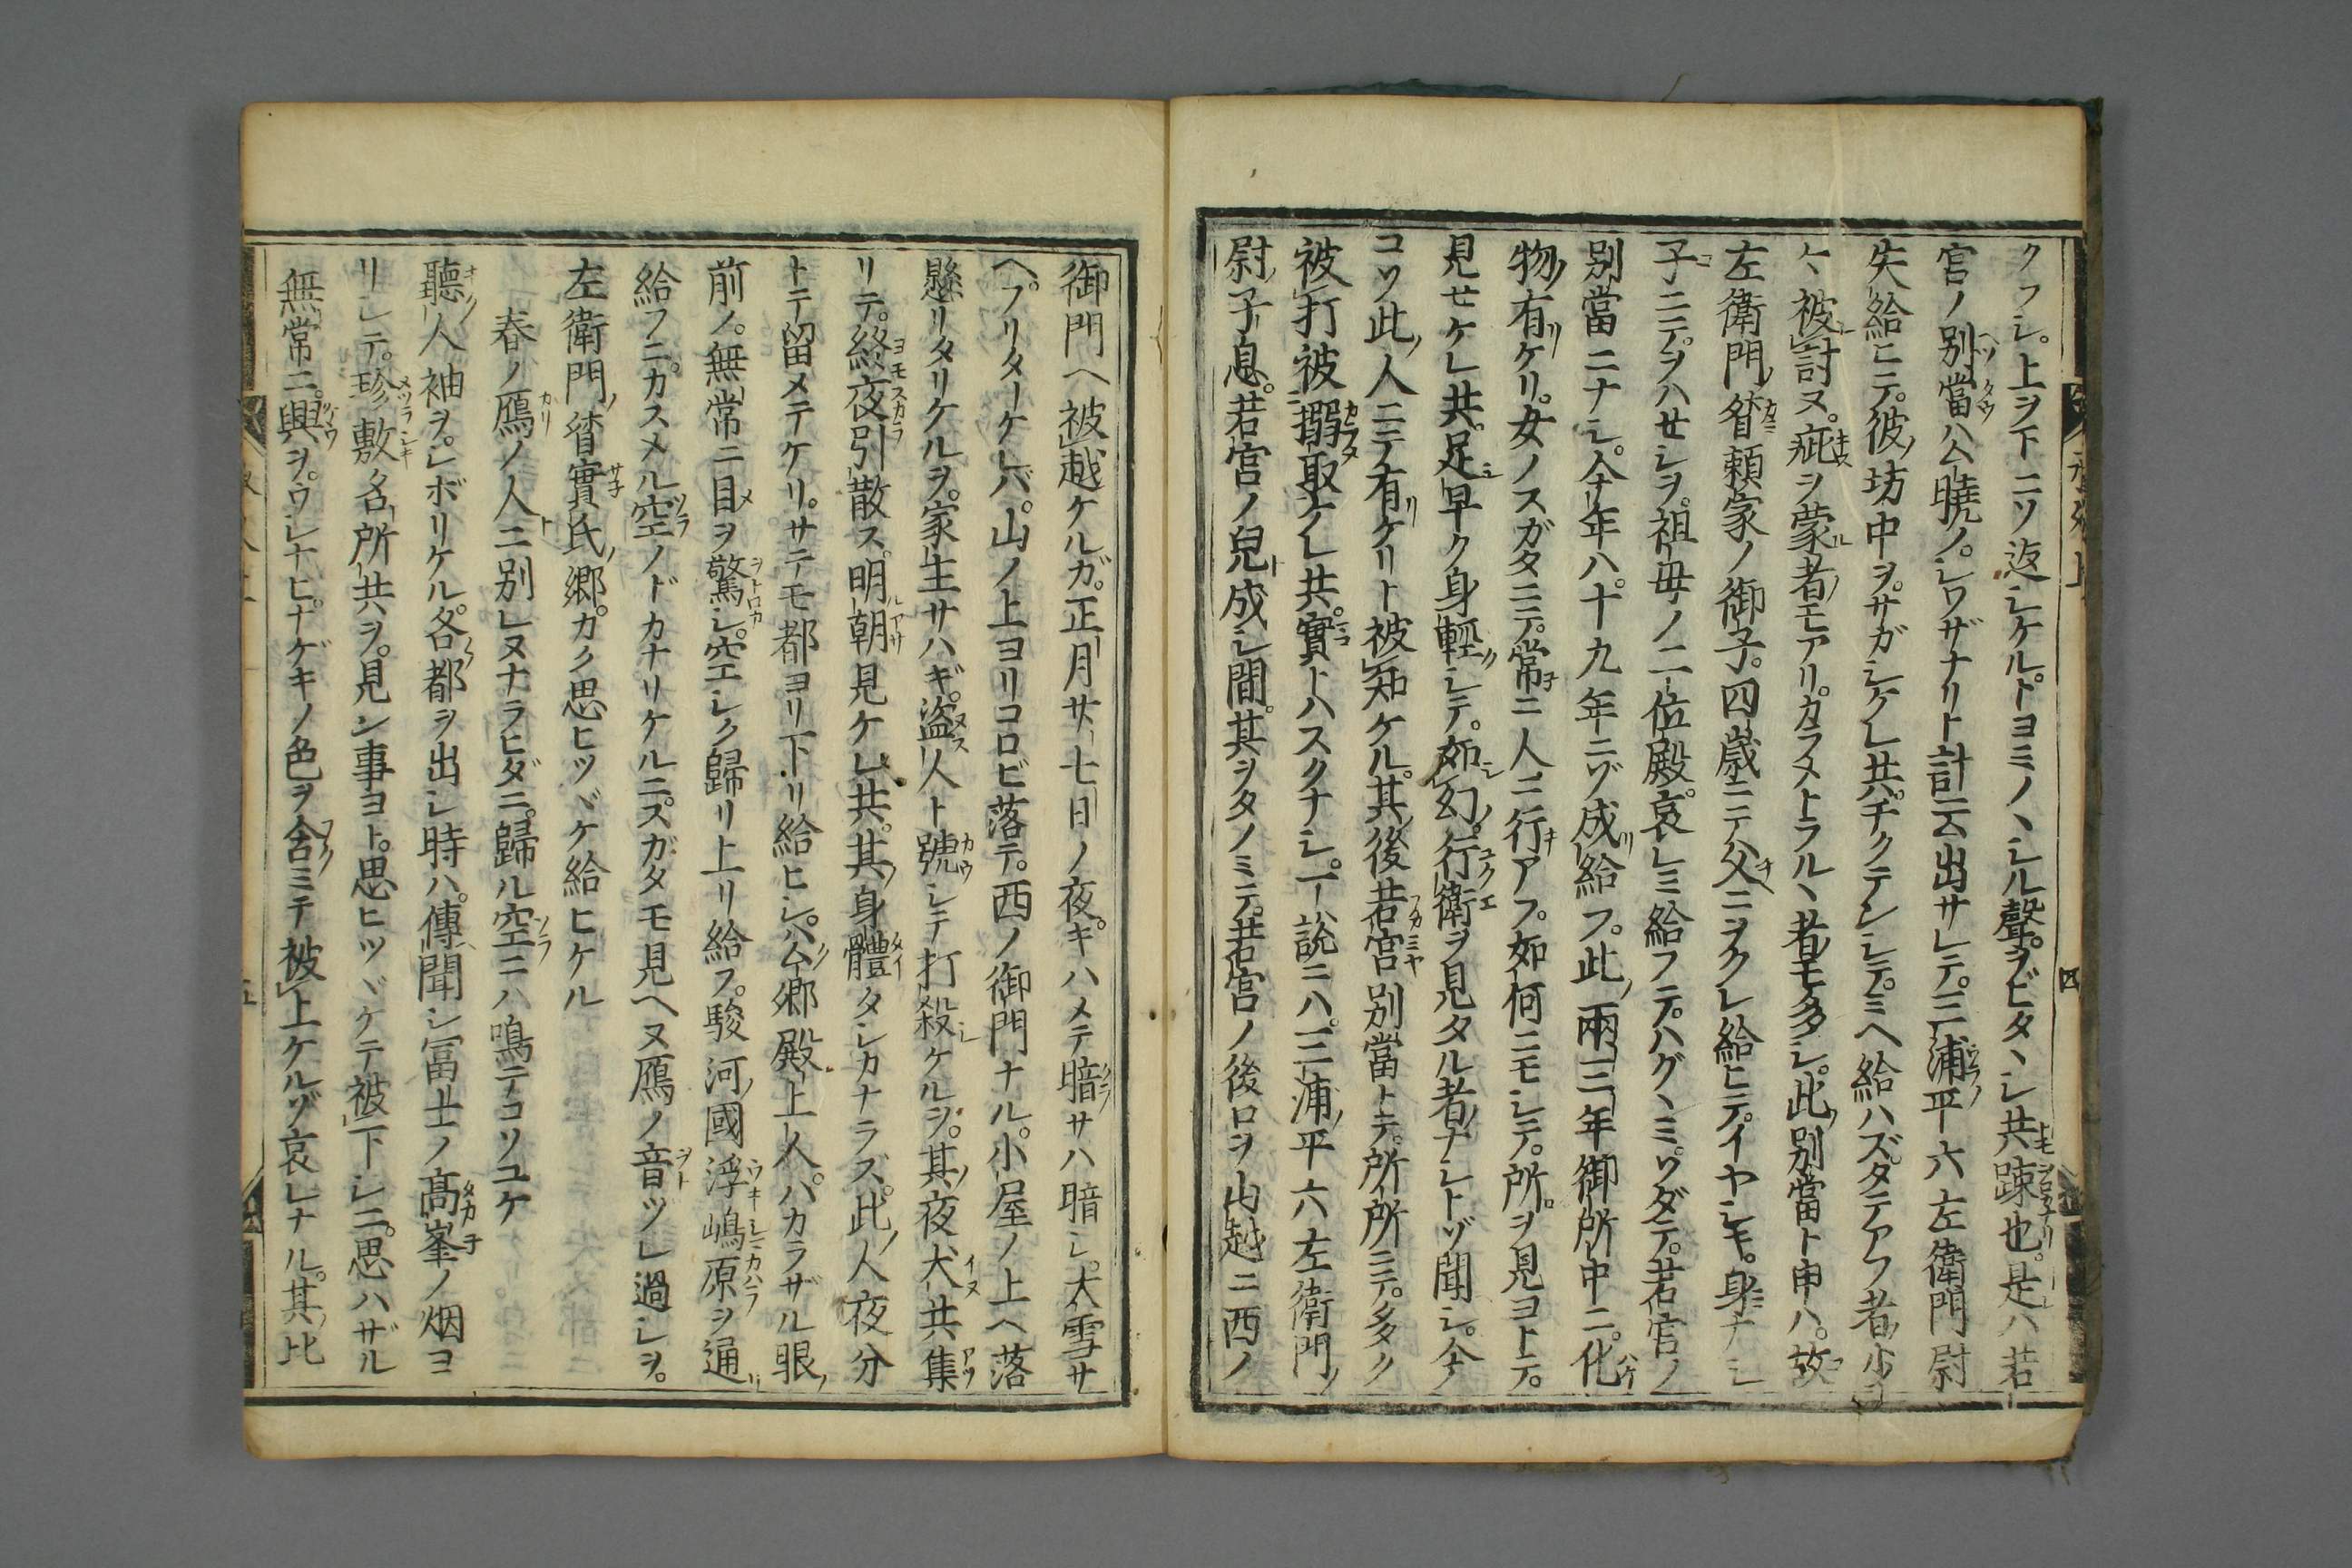 クフシ。上ヲ下ニソ返シケル。トヨミノヽシル聲。ヲビタヽシ共疎也。是ハ若
官ノ別當ハ公曉ノ。シワザナリト計云出サレテ。三浦平六左衛門尉
失給ヒニテ。彼坊中ヲ。サガシケレ共。チクテンシテ。ミヘ給ハズ。タテアフ者少
々被討ヌ。疵ヲ蒙者モアリ。カラメトラルヽ者モ多シ。此別當ト申ハ。故
左衛門督頼家ノ御子。四歳ニテ父ニヲクレ給ヒニテ。イヤシキ。身ナシ
子ニテ。ヲハセシヲ。祖母ノ二位殿。哀レミ給フテ。ハグヽミ。ソダテ。若官ノ
別當ニナシ。今年ハ。十九年ニゾ成給フ。此兩三年御所中ニ。化
物有ケリ。女ノスガタニテ。常ニ人ニ行アフ。如何ニモシテ。所。ヲ見ヨトテ。
見セケレ共。足早ク身輕シテ。如幻。行衛ヲ見タル者ナシトゾ聞シ。今
コソ此人ニテ有ケリト被知ケル。其後若宮別當トテ。所所ニテ。多ク
被打被搦取ケレ共。實トハスクナシ。一説ニハ。三浦平六左衛門
尉子息。若宮ノ兒成シ間。其ヲタノミテ。若宮ノ後ロヲ山越ニ西ノ
御門ヘ被越ケルガ。正月廿七日ノ夜。キハメテ暗サハ暗シ。大雪サ
ヘ。フリターケレバ。山ノ上ヨリコロビ落テ。西ノ御門ナル。小屋ノ上ヘ落
懸リタリケルヲ。家主サハギ。盗人ト號シテ打殺ケルヲ。其夜犬共集
リテ。終夜引散ス。明朝見ケレ共。其身體タシカナラズ。此人夜分
トテ留メテケリ。サテモ都ヨリ下リ給ヒシ。公郷殿上人。ハカラザル眼
前ノ。無常ニ目ヲ驚シ。空シク歸リ上リ給フ。駿河國浮嶋原ヲ通
給フニ。カスメル空ノドカナリケルニ。スガタモ見ヘヌ鴈ノ音ヅレ過シヲ。
左衛門督實氏郷。カク思ヒツヾケ給ヒケル
春ノ鴈ノ人ニ別レヌナラヒダニ。歸ル空ニハ鳴テコソユケ
聽人袖ヲ。シボリケル。各都ヲ出シ時ハ。傳聞シ冨士ノ高峯ノ烟ヨ
リシテ。珍敷名所共ヲ。見ン事ヨト。思ヒツヾケテ被下シニ。思ハザル
無常ニ。興ヲ。ウシナヒ。ナゲキノ色ヲ含ミテ被上ケルゾ哀レナル。其比
四
五